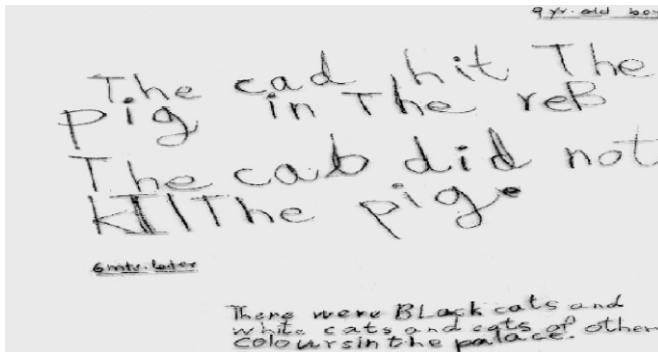 9 yr. old boy
The cad hit The
pig in The reB
The cab did not
kIllThe pig.
6 mts. later
There were BLack cats and
white cats and cats of other
coloursin the palace.